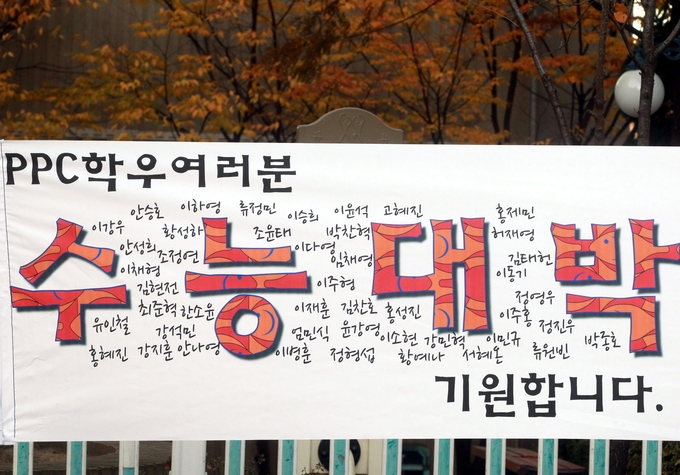 PPC학우여러분
안승호 이하영 류정민 이승희 이윤석 고혜진 홍제민
이강우 황성하 조윤태 박찬혁 허재영
안성희 조정연 이나영 임채영 김태헌
이채형 이동기
수능대박
김현전 이주형 정영우
최준혁 한소윤 이재훈 김찬호 홍성진 이주홍
유인철 강석민 엄민식 윤강영 이소현 강민혁 이민규 정진우 박종호
홍혜진 강지훈 안나영 이병훈 정형섭 황예나 서혜온 류원빈
기원합니다.